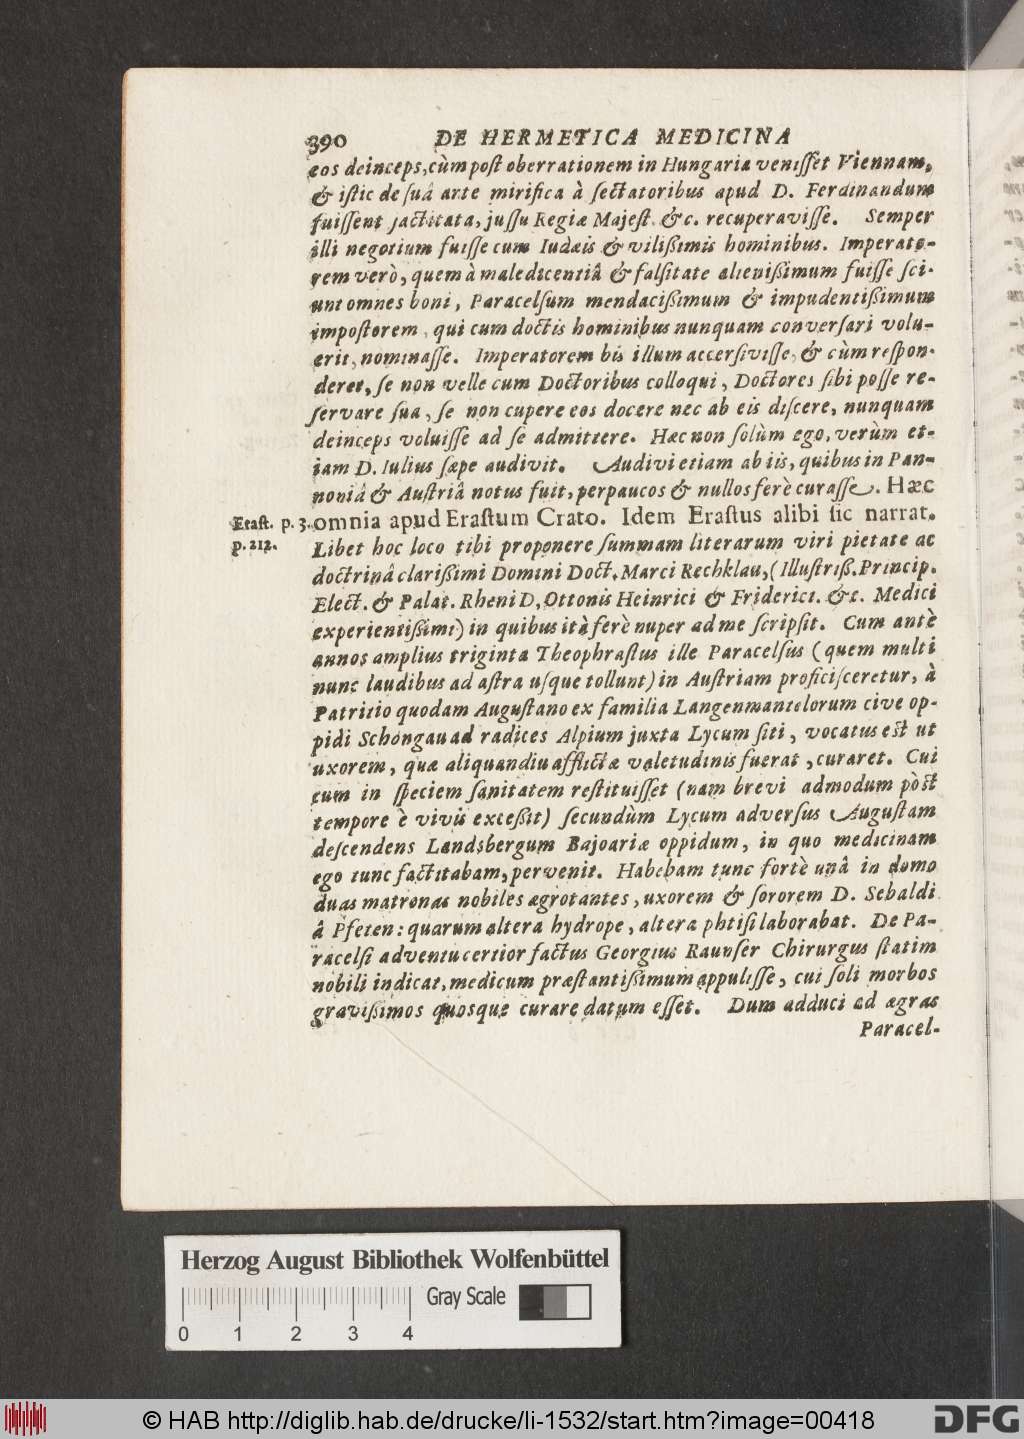 390 DE HERMETICA MEDICINA
eos deinceps, cùm post oberrationem in Hungaria venisset Viennam,
& istic de suâ arte mirifica à sectatoribus apud D. Ferdinandum
fuissent jactitata, jussu Regiæ Majest. &c. recuperavisse. Semper
illi negotium fuisse cum Iudæis & vilißimis hominibus. Imperato-
rem verò, quem à maledicentiâ & falsitate alienißimum fuisse sci-
unt omnes boni, Paracelsum mendacißimum & impudentißimum
impostorem, qui cum doctis hominibus nunquam conversari volu-
erit, nominasse. Imperatorem bis illum accersivisse, & cùm respon-
deret, se non velle cum Doctoribus colloqui, Doctores sibi posse re-
servare sua, se non cupere eos docere nec ab eis discere, nunquam
deinceps voluisse ad se admittere. Hæc non solùm ego, verùm et-
iam D. Iulius sæpe audivit. Audivi etiam ab iis, quibus in Pan-
noniâ & Austriâ notus fuit, perpaucos & nullos ferè curasse. Hæc
Erast. p. 3. omnia apud Erastum Crato. Idem Erastus alibi sic narrat.
p. 212. Libet hoc loco tibi proponere summam literarum viri pietate ac
doctrinâ clarißimi Domini Doct. Marci Rechklau, (Illustriß. Princip.
Elect. & Palat. Rheni D. Ottonis Heinrici & Friderici. &c. Medici
experientißimi) in quibus ità ferè nuper ad me scripsit. Cum antè
annos amplius triginta Theophrastus ille Paracelsus (quem multi
nunc laudibus ad astra usque tollunt) in Austriam proficisceretur, à
Patritio quodam Augustano ex familia Langenmantelorum cive op-
pidi Schöngau ad radices Alpium juxta Lycum siti, vocatus est ut
uxorem, quæ aliquandiu afflictæ valetudinis fuerat, curaret. Cui
cum in speciem sanitatem restituisset (nam brevi admodum pòst
tempore è vivis exceßit) secundùm Lycum adversus Augustam
descendens Landsbergum Bajoariæ oppidum, in quo medicinam
ego tunc factitabam, pervenit. Habebam tunc fortè unâ in domo
duas matronas nobiles ægrotantes, uxorem & sororem D. Sebaldi
â Pfeten: quarum altera hydrope, altera phtisi laborabat. De Pa-
racelsi adventu certior factus Georgius Raunser Chirurgus statim
nobili indicat, medicum præstantißimum appulisse, cui soli morbos
gravißimos quosque curare datum esset. Dum adduci ad ægras
Paracel-
Herzog August Bibliothek Wolfenbüttel
Gray Scale
0 1 2 3 4
© HAB http://diglib.hab.de/drucke/li-1532/start.htm?image=00418
DFG